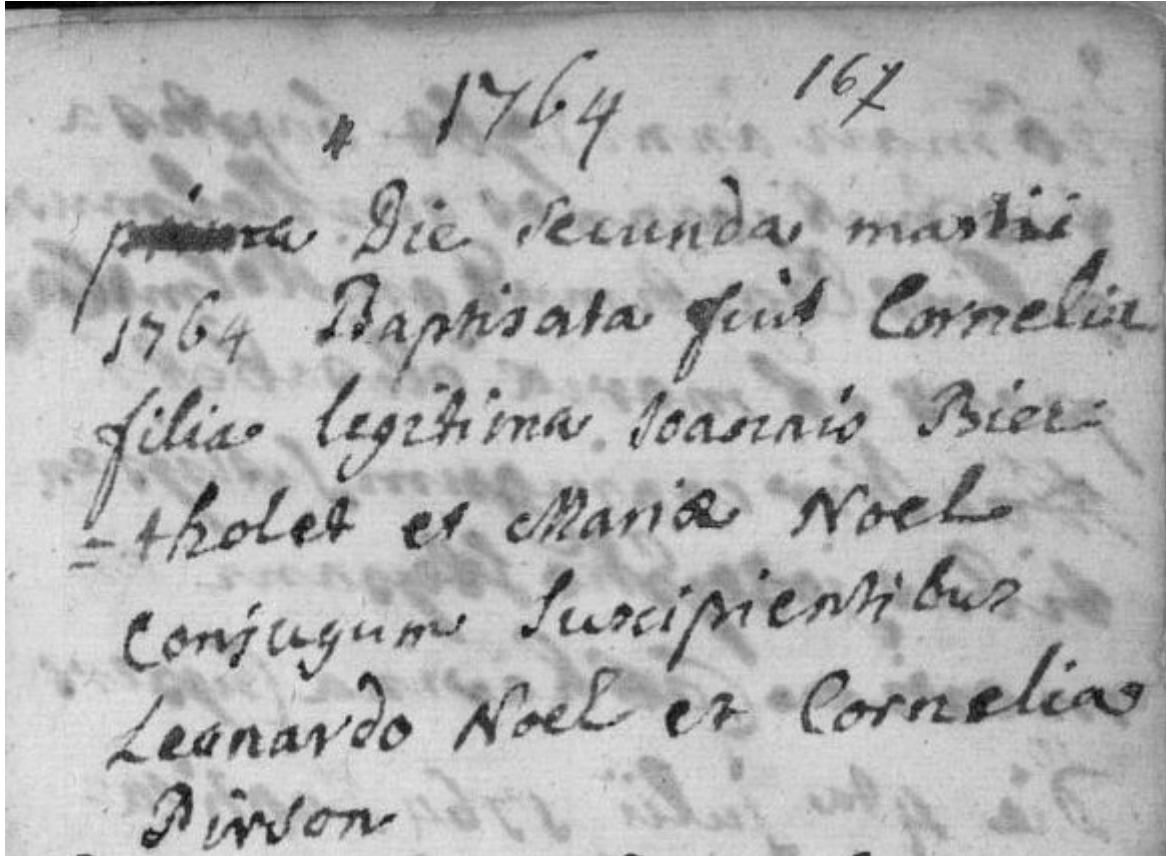 1764 167
prima Die secunda martii
1764 Baptisata fuit Cornelia
filia legitima Joannis Bier=
=tholet et Mariæ Noel
Conjugum Suscipientibus
Leonardo Noel et Cornelia
Pirson